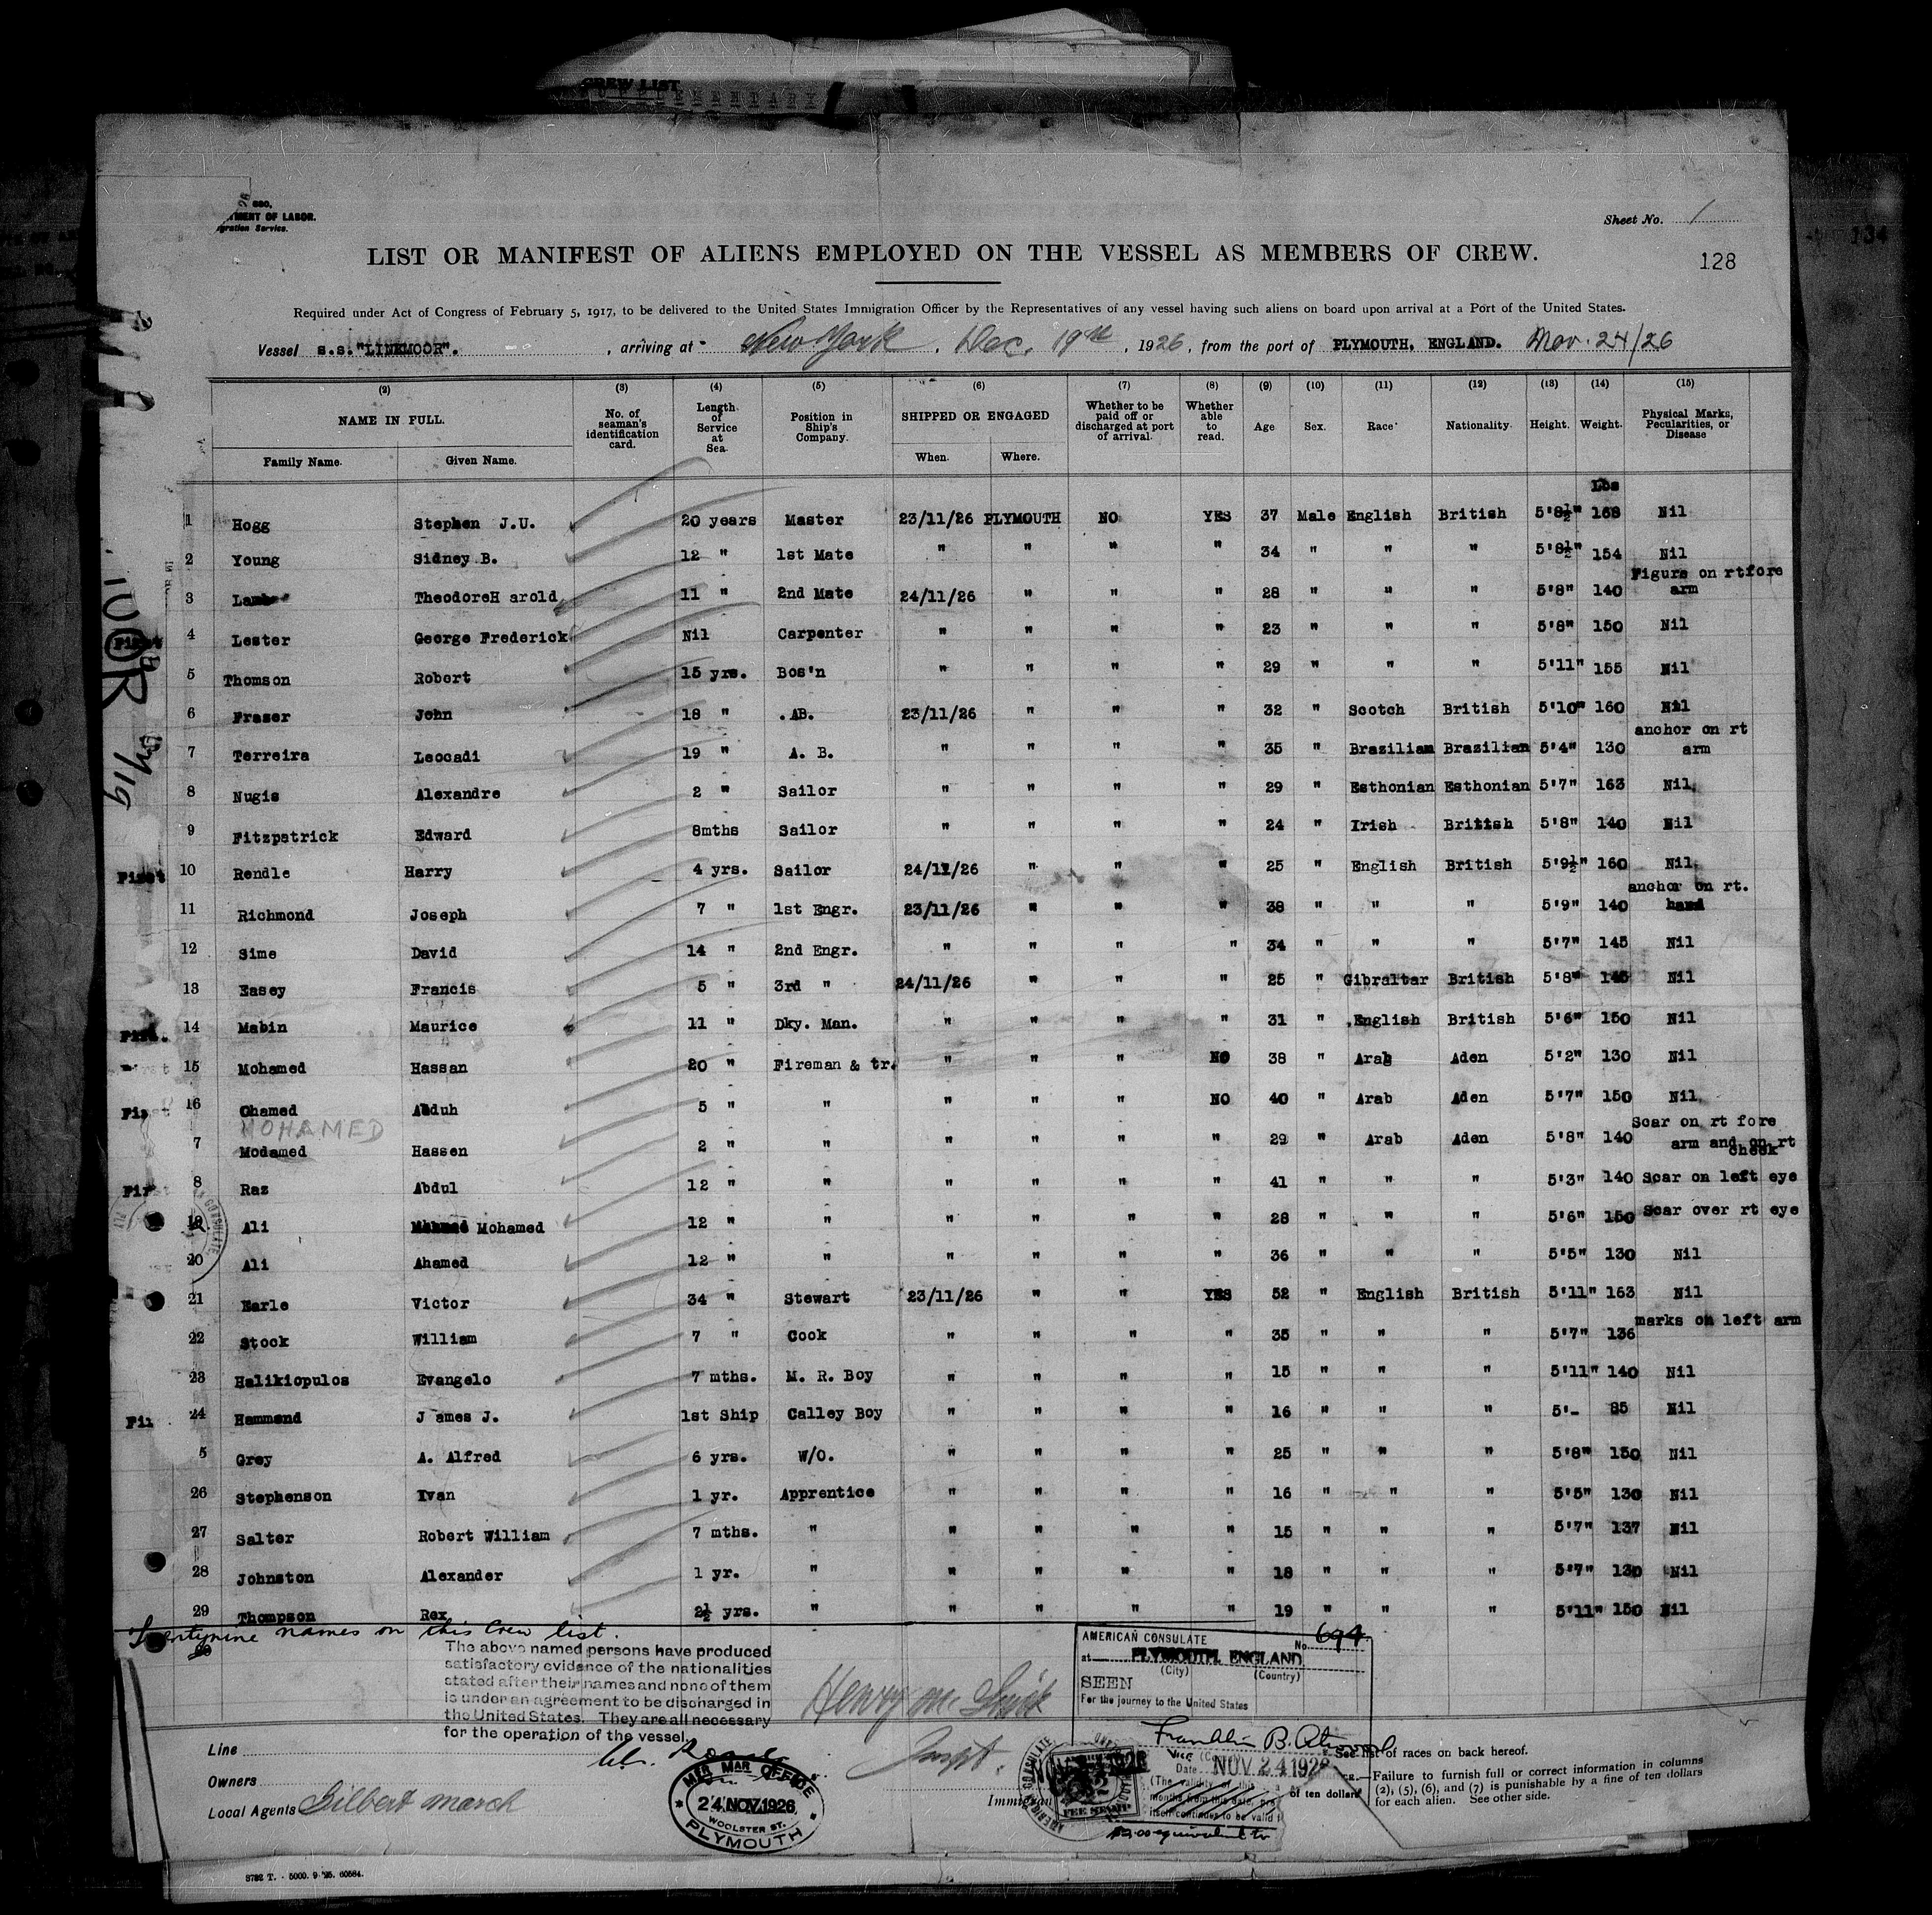 CREW LIST
Sheet No. 1
TMENT OF LABOR.
gration Service.
LIST OR MANIFEST OF ALIENS EMPLOYED ON THE VESSEL AS MEMBERS OF CREW.
128
134
Required under Act of Congress of February 5, 1917, to be delivered to the United States Immigration Officer by the Representatives of any vessel having such aliens on board upon arrival at a Port of the United States.
Vessel s.s."LINKMOOR"., arriving at New York, Dec. 19th, 1926, from the port of PLYMOUTH, ENGLAND. Nov. 24/26
(2) (3) (4) (5) (6) (7) (8) (9) (10) (11) (12) (13) (14) (15)
NAME IN FULL. No. of seaman's identification card. Length of Service at Sea. Position in Ship's Company. SHIPPED OR ENGAGED Whether to be paid off or discharged at port of arrival. Whether able to read. Age Sex. Race Nationality. Height. Weight. Physical Marks, Pecularities, or Disease
Family Name. Given Name. When. Where.
Lbs
1 Hogg Stephen J.U. 20 years Master 23/11/26 PLYMOUTH NO YES 37 Male English British 5'8½" 168 Nil
2 Young Sidney B. 12 " 1st Mate " " " " 34 " " " 5'8½" 154 Nil
3 Lamb TheodoreH arold 11 " 2nd Mate 24/11/26 " " " 28 " " " 5'8" 140 Figure on rtfore arm
First 4 Lester George Frederick Nil Carpenter " " " " 23 " " " 5'8" 150 Nil
5 Thomson Robert 15 yrs. Bos'n " " " " 29 " " " 5'11" 155 Nil
6 Fraser John 18 " .AB. 23/11/26 " " " 32 " Scotch British 5'10" 160 Nil
7 Terreira Leocadi 19 " A. B. " " " " 35 " Brazilian Brazilian 5'4" 130 anchor on rt arm
8 Nugis Alexandre 2 " Sailor " " " " 29 " Esthonian Esthonian 5'7" 163 Nil
9 Fitzpatrick Edward 8mths Sailor " " " " 24 " Irish British 5'8" 140 Nil
First 10 Rendle Harry 4 yrs. Sailor 24/11/26 " " " 25 " English British 5'9½" 160 Nil
11 Richmond Joseph 7 " 1st Engr. 23/11/26 " " " 38 " " " 5'9" 140 anchor on rt. hand
12 Sime David 14 " 2nd Engr. " " " " 34 " " " 5'7" 145 Nil
13 Easey Francis 5 " 3rd " 24/11/26 " " " 25 " Gibraltar British 5'8" 145 Nil
14 Mabin Maurice 11 " Dky. Man. " " " " 31 " English British 5'6" 150 Nil
15 Mohamed Hassan 20 " Fireman & tr. " " " NO 38 " Arab Aden 5'2" 130 Nil
First 16 Ohamed Abduh 5 " " " " " NO 40 " Arab Aden 5'7" 150 Nil
MOHAMED
7 Modamed Hassen 2 " " " " " " 29 " Arab Aden 5'8" 140 Scar on rt fore arm and on rt cheek
Fir 8 Raz Abdul 12 " " " " " " 41 " " " 5'3" 140 Scar on left eye
19 Ali Mohamed 12 " " " " " " 28 " " " 5'6" 150 Scar over rt eye
20 Ali Ahamed 12 " " " " " " 36 " " " 5'5" 130 Nil
21 Earle Victor 34 " Stewart 23/11/26 " " YES 52 " English British 5'11" 163 Nil
22 Stock William 7 " Cook " " " " 35 " " " 5'7" 136 marks on left arm
23 Halikiopulos Evangelo 7 mths. M. R. Boy " " " " 15 " " " 5'11" 140 Nil
Fir 24 Hammond J ames J. 1st Ship Calley Boy " " " " 16 " " " 5'- 85 Nil
5 Grey A. Alfred 6 yrs. W/O. " " " " 25 " " " 5'8" 150 Nil
26 Stephenson Ivan 1 yr. Apprentice " " " " 16 " " " 5'5" 130 Nil
27 Salter Robert William 7 mths. " " " " " 15 " " " 5'7" 137 Nil
28 Johnston Alexander 1 yr. " " " " " 18 " " " 5'7" 130 Nil
29 Thompson Rex 2½ yrs. " " " " " 19 " " " 5'11" 150 Nil
Twentynine names on this Crew list.
The above named persons have produced
satisfactory evidence of the nationalities
stated after their names and none of them
is under an agreement to be discharged in
the United States. They are all necessary
for the operation of the vessel.
AMERICAN CONSULATE No. 694
at PLYMOUTH, ENGLAND
(City) (Country)
SEEN
For the journey to the United States
Franklin B. Atwood
Vice
Date NOV 24 1926
Line
Owners
Local Agents Gilbert March
MER MAR OFFICE
24 NOV 1926
WOOLSTER ST.
PLYMOUTH
FEE STAMP
See list of races on back hereof.
Failure to furnish full or correct information in columns
(2), (5), (6), and (7) is punishable by a fine of ten dollars
for each alien. See other side.
of ten dollars
$2.00 equivalent to
3782 T. - 5000. 9.'25. 60584.